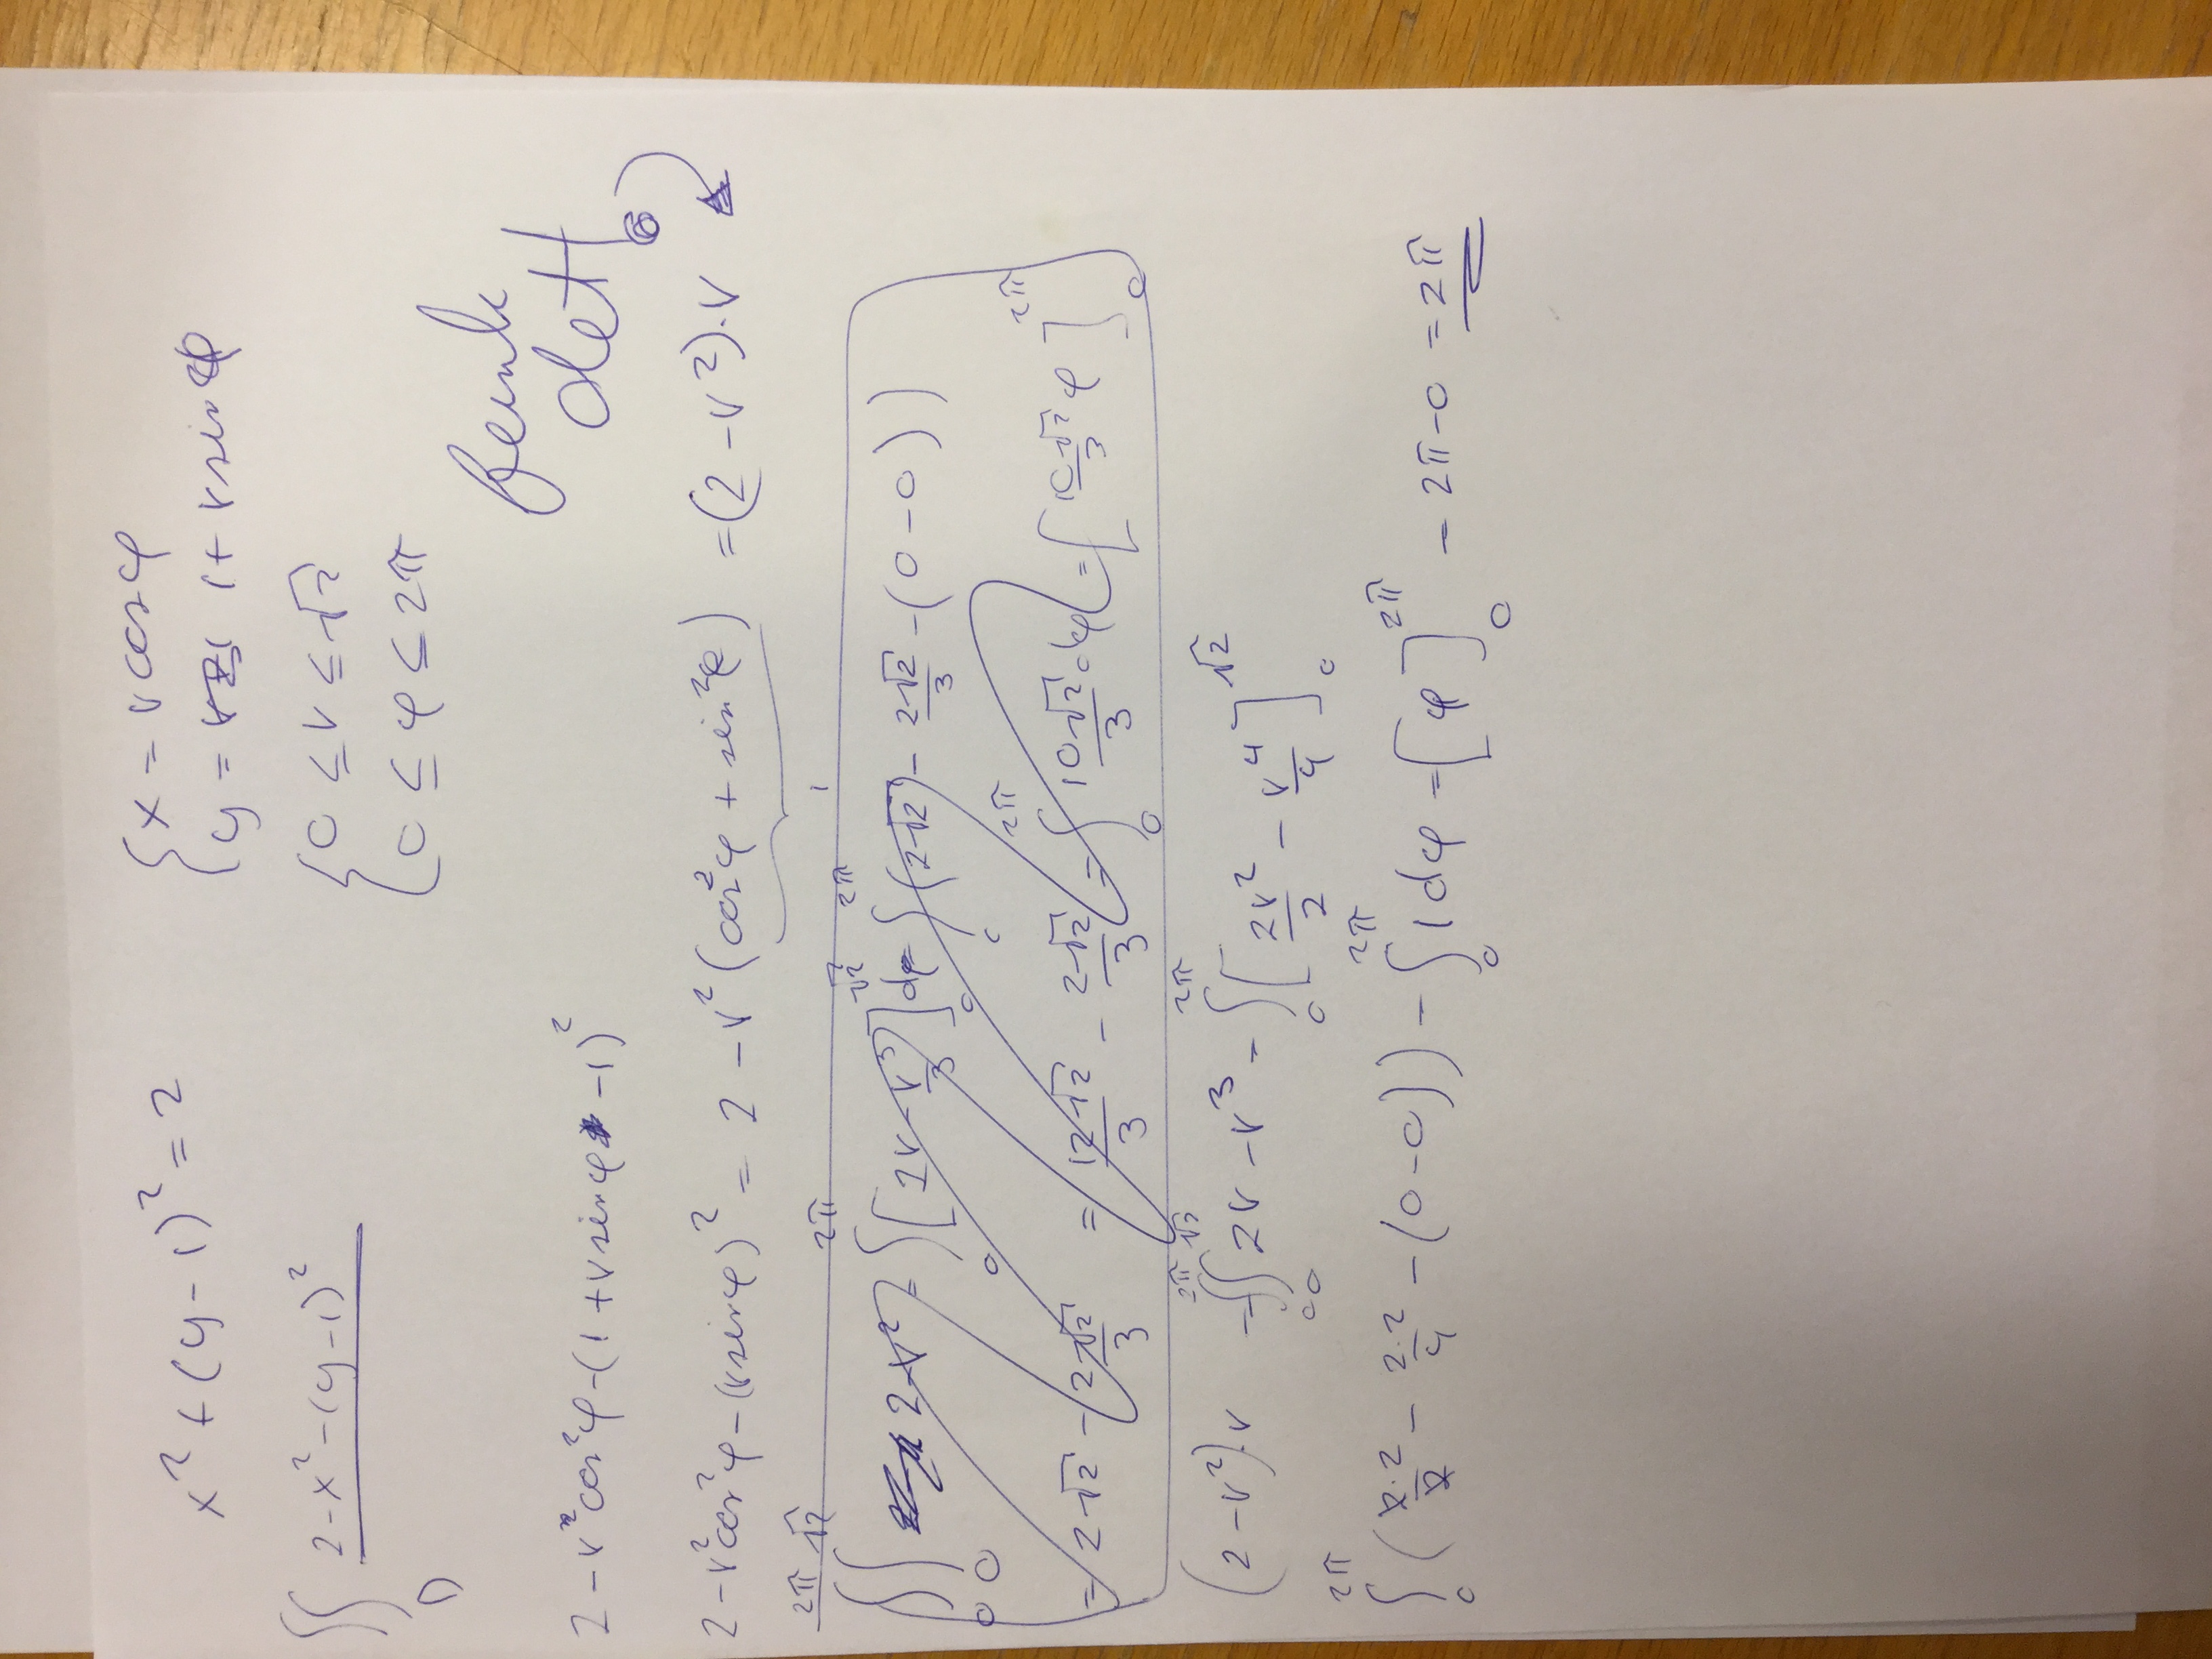 x² + (y-1)² = 2
{x = r cos φ
{y = 1 + r sin φ
∬ 2-x²-(y-1)²
D
{0 ≤ r ≤ √2
{0 ≤ φ ≤ 2π
funk
dett
2 - r²cos²φ - (1 + r sin φ - 1)²
2 - r²cos²φ - (r sin φ)² = 2 - r² (cos²φ + sin²φ) = (2 - r²)·r
1
∫₀^2π ∫₀^√2 2 - r² = ∫₀^2π [2r - r³/3]₀^√2 dφ = ∫₀^2π (2√2 - 2√2/3 - (0-0))
= 2√2 - 2√2/3 = 12√2/3 - 2√2/3 = ∫₀^2π 10√2/3 dφ = [10√2/3 φ]₀^2π
(2 - r²)·r = ∫₀^2π ∫₀^√2 2r - r³ = ∫₀^2π [2r²/2 - r⁴/4]₀^√2
∫₀^2π (2·2/2 - 2·2/4 - (0-0)) = ∫₀^2π 1 dφ = [φ]₀^2π = 2π - 0 = 2π